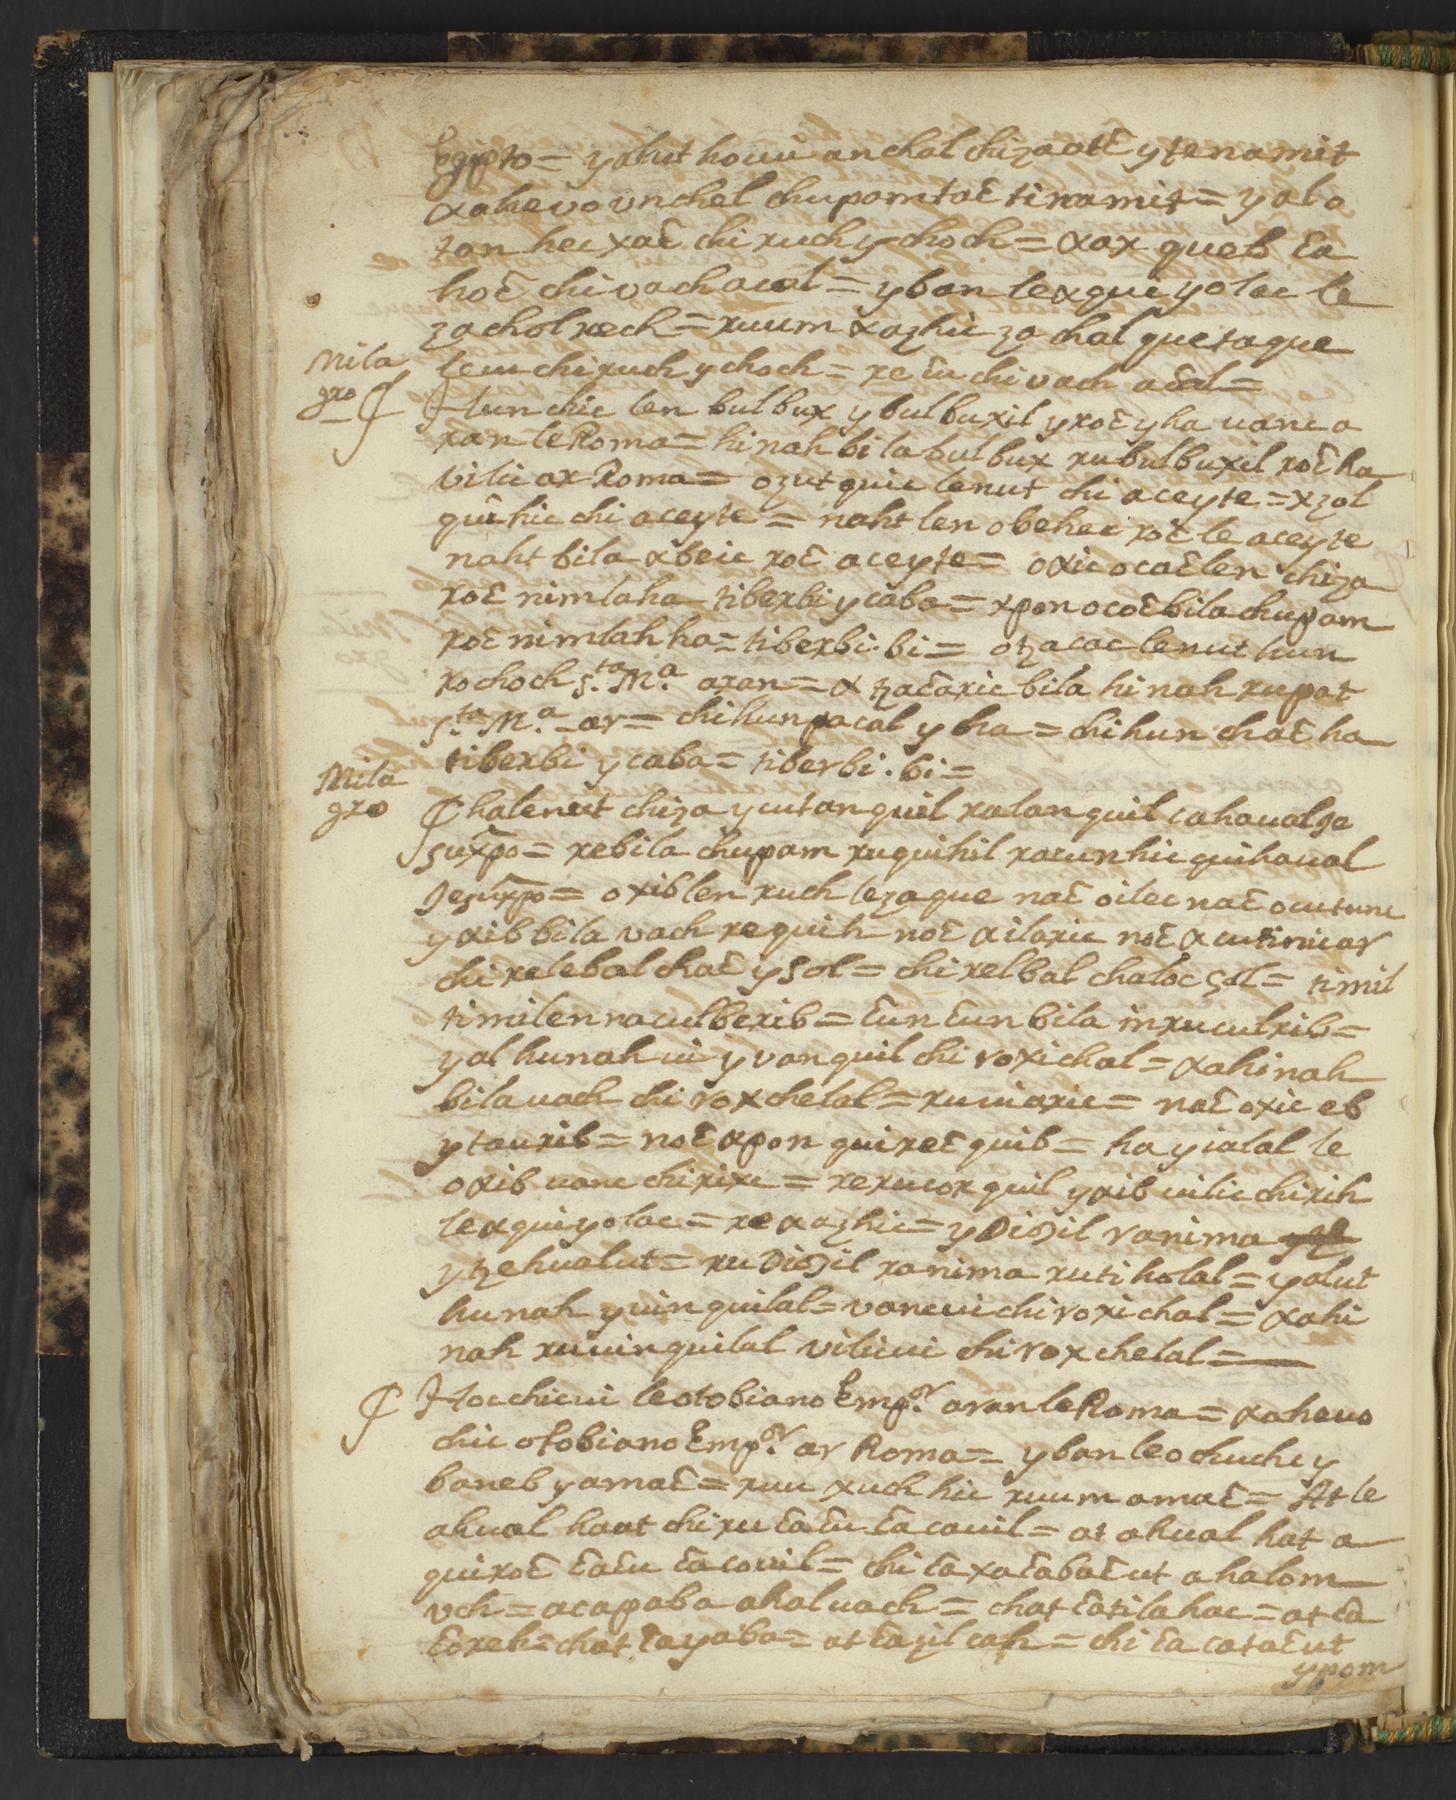 egipto = yalut houii an chal chizaotē y tenamit
xahevo vnchel chupamtaē tinamit = yal a
tan hec xaē chi ruch y choch = xax queb ēa
hoē chi vach acal = y ban lexqui yolac le
zachol rech = ruum xazhic za chal quetaque
Mila
gro
leui chi ruch y choch = re ēu chi vach aēal =
₡ Hun chic len bulbux y bulbuxil y roē y ha uanc a
ran le Roma = hinah bila bulbux rubulbuxil roē ha
vilic ar Roma = ozut quic lenut chi aceyte = xzol
quihic chi aceyte = naht len obehec roē le aceyte
naht bila xbeic roē aceyte = oxic ocaē len chiza
roē nimlaha tiberbi y caba = xpon ocoē bila chupam
roē nimlah ha = tiberbi . bi = otzacac lenut hun
rochoch s.ta M.a aran = x tzaēaric bila hinah rupat
s.ta M.a ar = chi hun pacal y ha = chi hun chaē ha
tiberbi y caba = tiberbi . bi =
Mila
gro
₡ halenut chiza y cutanquil ralanquil cahaual Je
suxpo = rebila chupam ruquihil racunhic quihaual
Jesuxpo = oxib len ruch lezaque naē oilec naē ocutunc
y xib bila vach requih noē xilaric noē xcutinicar
chi relebal chaē y sol = chi relbal chaloc sol = timil
timilen naculberib = ēun ēun bila inruculrib =
yal hunah ui y vanquil chi roxichal = xahinah
bila uach chi roxchelal = ruuiaric = naē oxic eb
y taurib = noē xpon quireē quib = ha y ialal le
oxib uanc chirixc = rerucorquil y xib uilic chirih
lexqui yolac = re xazhic = y Diosil ranima
y tzehualut = ru Diosil ranima rutiholal = yalut
hunah y uinquilal = vancui chi roxichal = xahi
nah ruuinquilal vilicui chi roxchelal =
₡ Hocchicui leotobiano Emp.or aran le Roma = xaheuo
chic otobiano Emp.or ar Roma = y ban leochuchcy
baneb y amaē = ruu xuch hic ruum amaē = At le
ahual haat chi ru ēaēu ēacauil = at ahual hat a
quiroē ēaēu ēacouil = chi ēaxaēabaē ut ahalom
vch = acapaba ahaluach = chat ēatilahac = at ēa
ēoreh = chat ēayaba = at ēazilcah = chi ēacataēut
y pom